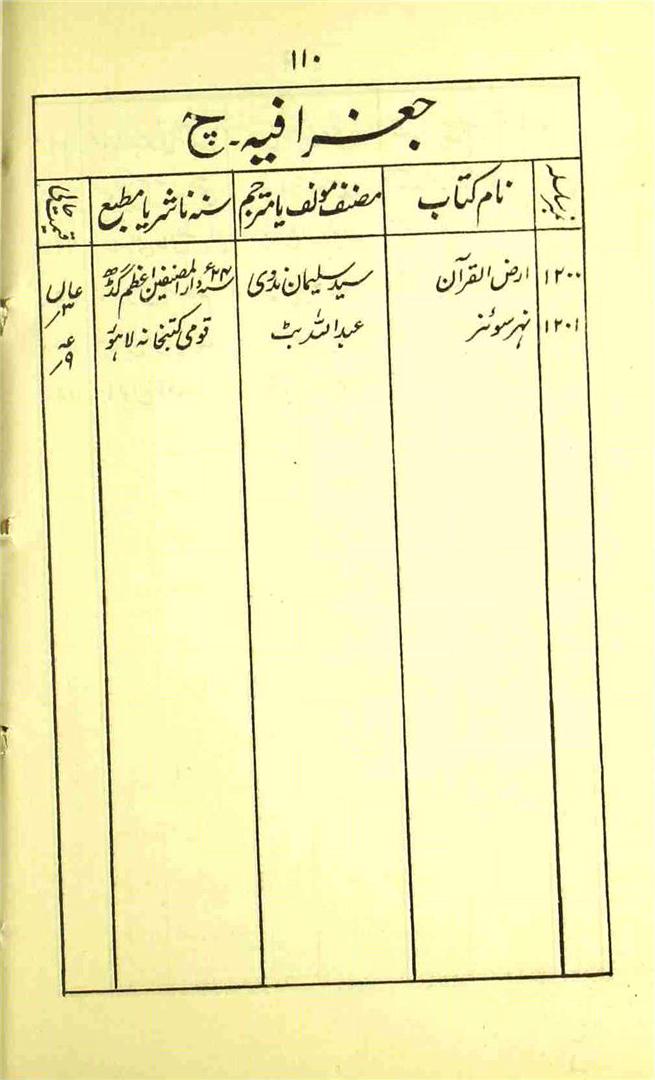 ۱۱۰
جغرافیہ۔ چ
نمبر سلسلہ نام کتاب مصنف مولف یا مترجم سنہ ناشر یا مطبع قیمت حالی
۱۲۰۰ ارض القرآن سید سلیمان ندوی ۲۴ء دارالمصنفین اعظم گڈھ
۱۲۰۱ نہر سوئز عبداللہ بٹ قومی کتبخانہ لاہور